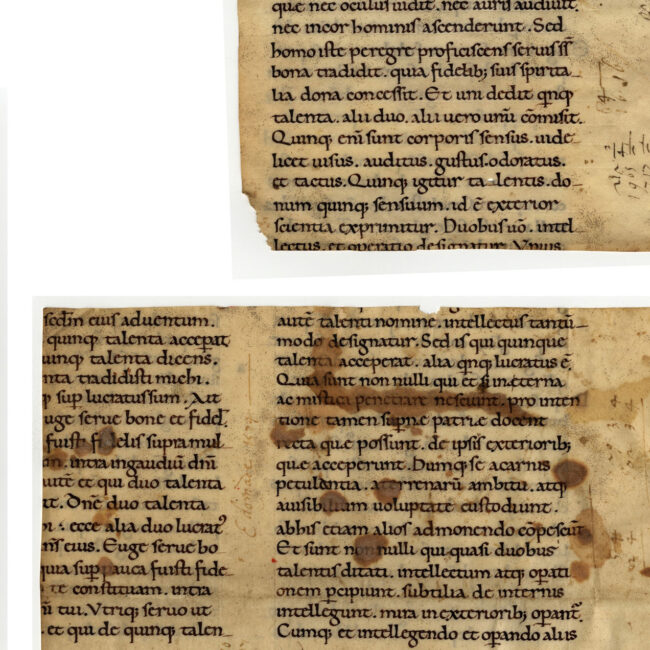 que nec oculus uidit. nec auris audiuit.
nec incor hominis ascenderunt. Sed
homo iste peregre proficiscens seruis sꝰ
bona tradidit. quia fidelib; suis spirita
lia dona concessit. Et uni dedit qnq;
talenta. alii duo. alii uero unū cōmisit.
Quinq; enī sunt corporis sensus. uide
licet uisus. auditus. gustus. odoratus.
et tactus. Quinq; igitur ta lentis. do
num quinq; sensuum. id ē exterior
scientia exprimitur. Duobus uō. intel
lectus. et operatio designatur. Vnius
scdm eius aduentum.
quinq; talenta accepat
uinq; talenta dicens.
nta tradidisti michi.
q; sup lucratus sum. Ait
uge serue bone et fidel
fuisti fidelis supra mul
intra ingaudiū dnī
autē et qui duo talenta
it. Dnē duo talenta
ecce alia duo lucrat⁹
ns eius. Euge serue bo
quia sup pauca fuisti fide
te constituam. intra
ū tui. Vtriq; seruo ut
et qui de quinq; talen
autē talenti nomine. intellectus tantū
modo designatur. Sed is qui quinque
talenta acceperat. alia qnq; lucratus ē.
Quia sunt non nulli qui et si interna
ac mistica penetrare nesciunt. pro inten
tione tamen supne patrie docent
recta que possunt. de ipsis exteriorib;
que acceperunt. Dumq; se acarnis
petulantia. aterrenarū ambitu. atq;
auisibilium uoluptate custodiunt.
abhis etiam alios admonendo cōpescunt
Et sunt non nulli qui quasi duobus
talentis ditati. intellectum atq; opati
onem pcipiunt. subtilia de internis
intellegunt. mira in exteriorib; opant.
Cumq; et intellegendo et opando aliis